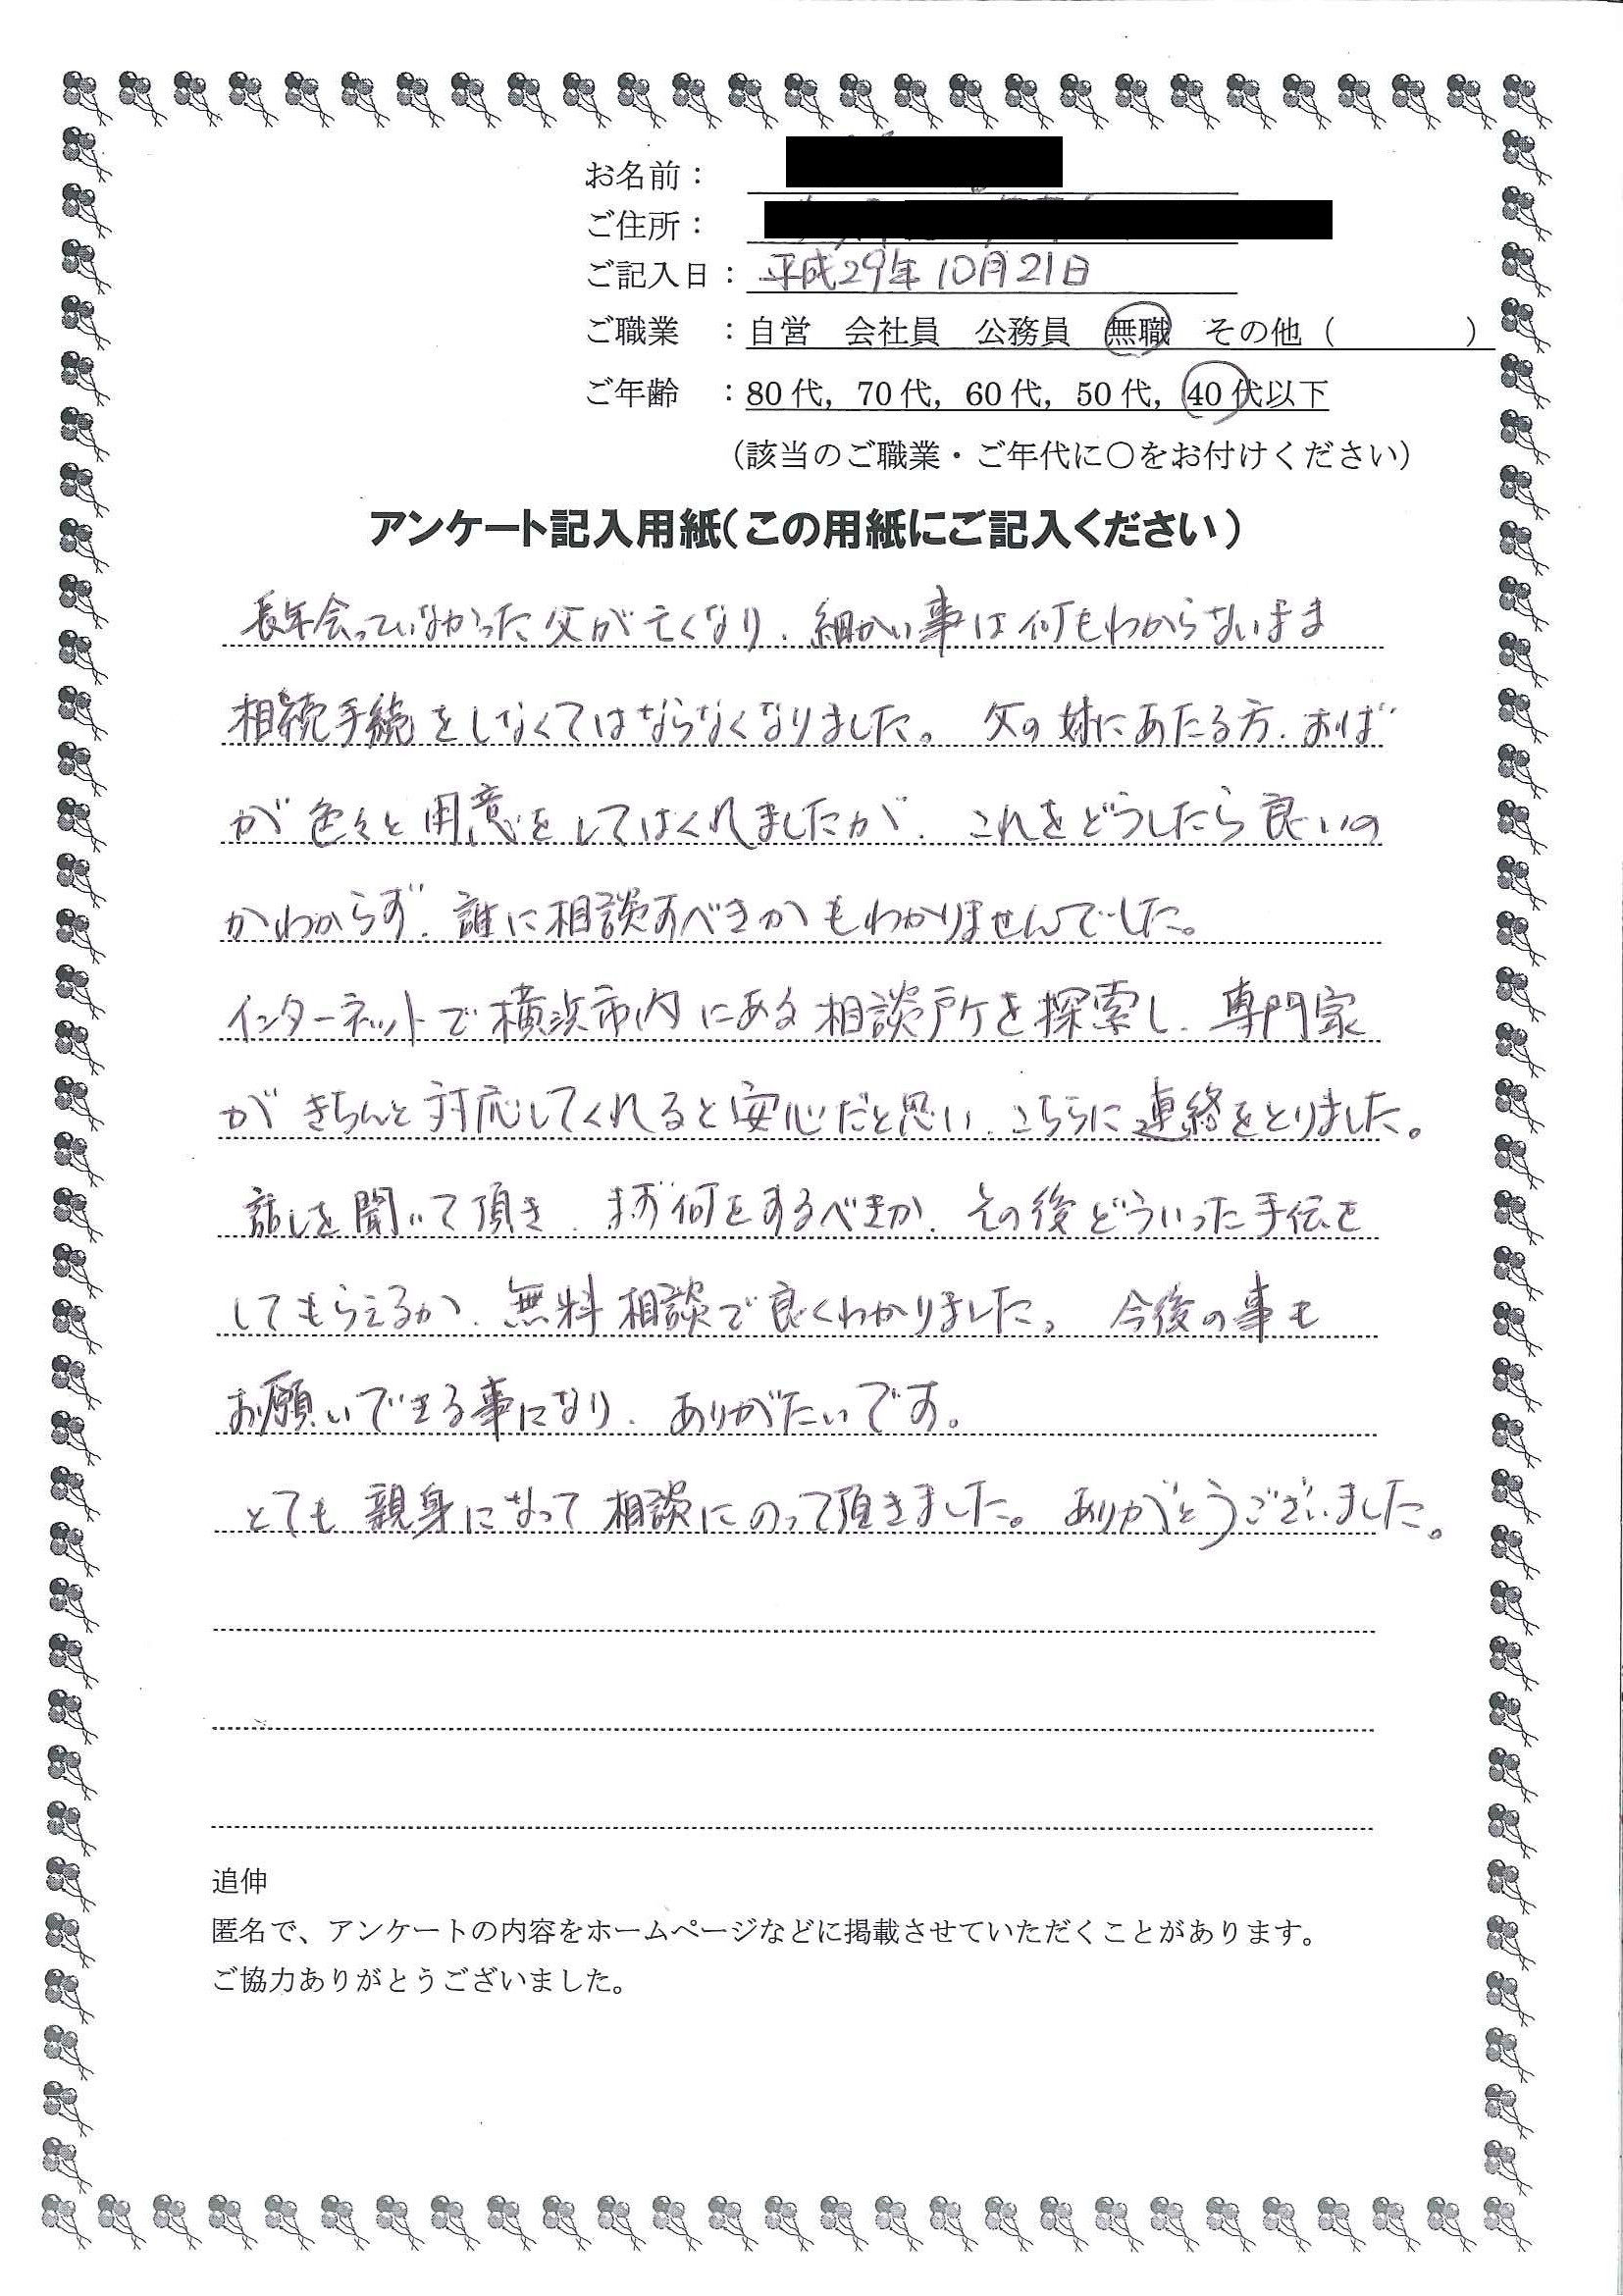 お名前：
ご住所：
ご記入日： 平成29年10月21日
ご職業 ：自営 会社員 公務員 無職 その他（ ）
ご年齢 ：80代，70代，60代，50代，40代以下
（該当のご職業・ご年代に○をお付けください）
アンケート記入用紙（この用紙にご記入ください）
長年会っていなかった父が亡くなり、細かい事は何もわからないまま
相続手続をしなくてはならなくなりました。 父の妹にあたる方、おば
が色々と用意をしてはくれましたが、これをどうしたら良いの
かわからず、誰に相談すべきかもわかりませんでした。
インターネットで横浜市内にある相談所を探索し、専門家
がきちんと対応してくれると安心だと思い、こちらに連絡をとりました。
話しを聞いて頂き、まず何をするべきか、その後どういった手伝を
してもらえるか、無料相談で良くわかりました。 今後の事も
お願いできる事になり、ありがたいです。
とても親身になって相談にのって頂きました。ありがとうございました。
追伸
匿名で、アンケートの内容をホームページなどに掲載させていただくことがあります。
ご協力ありがとうございました。